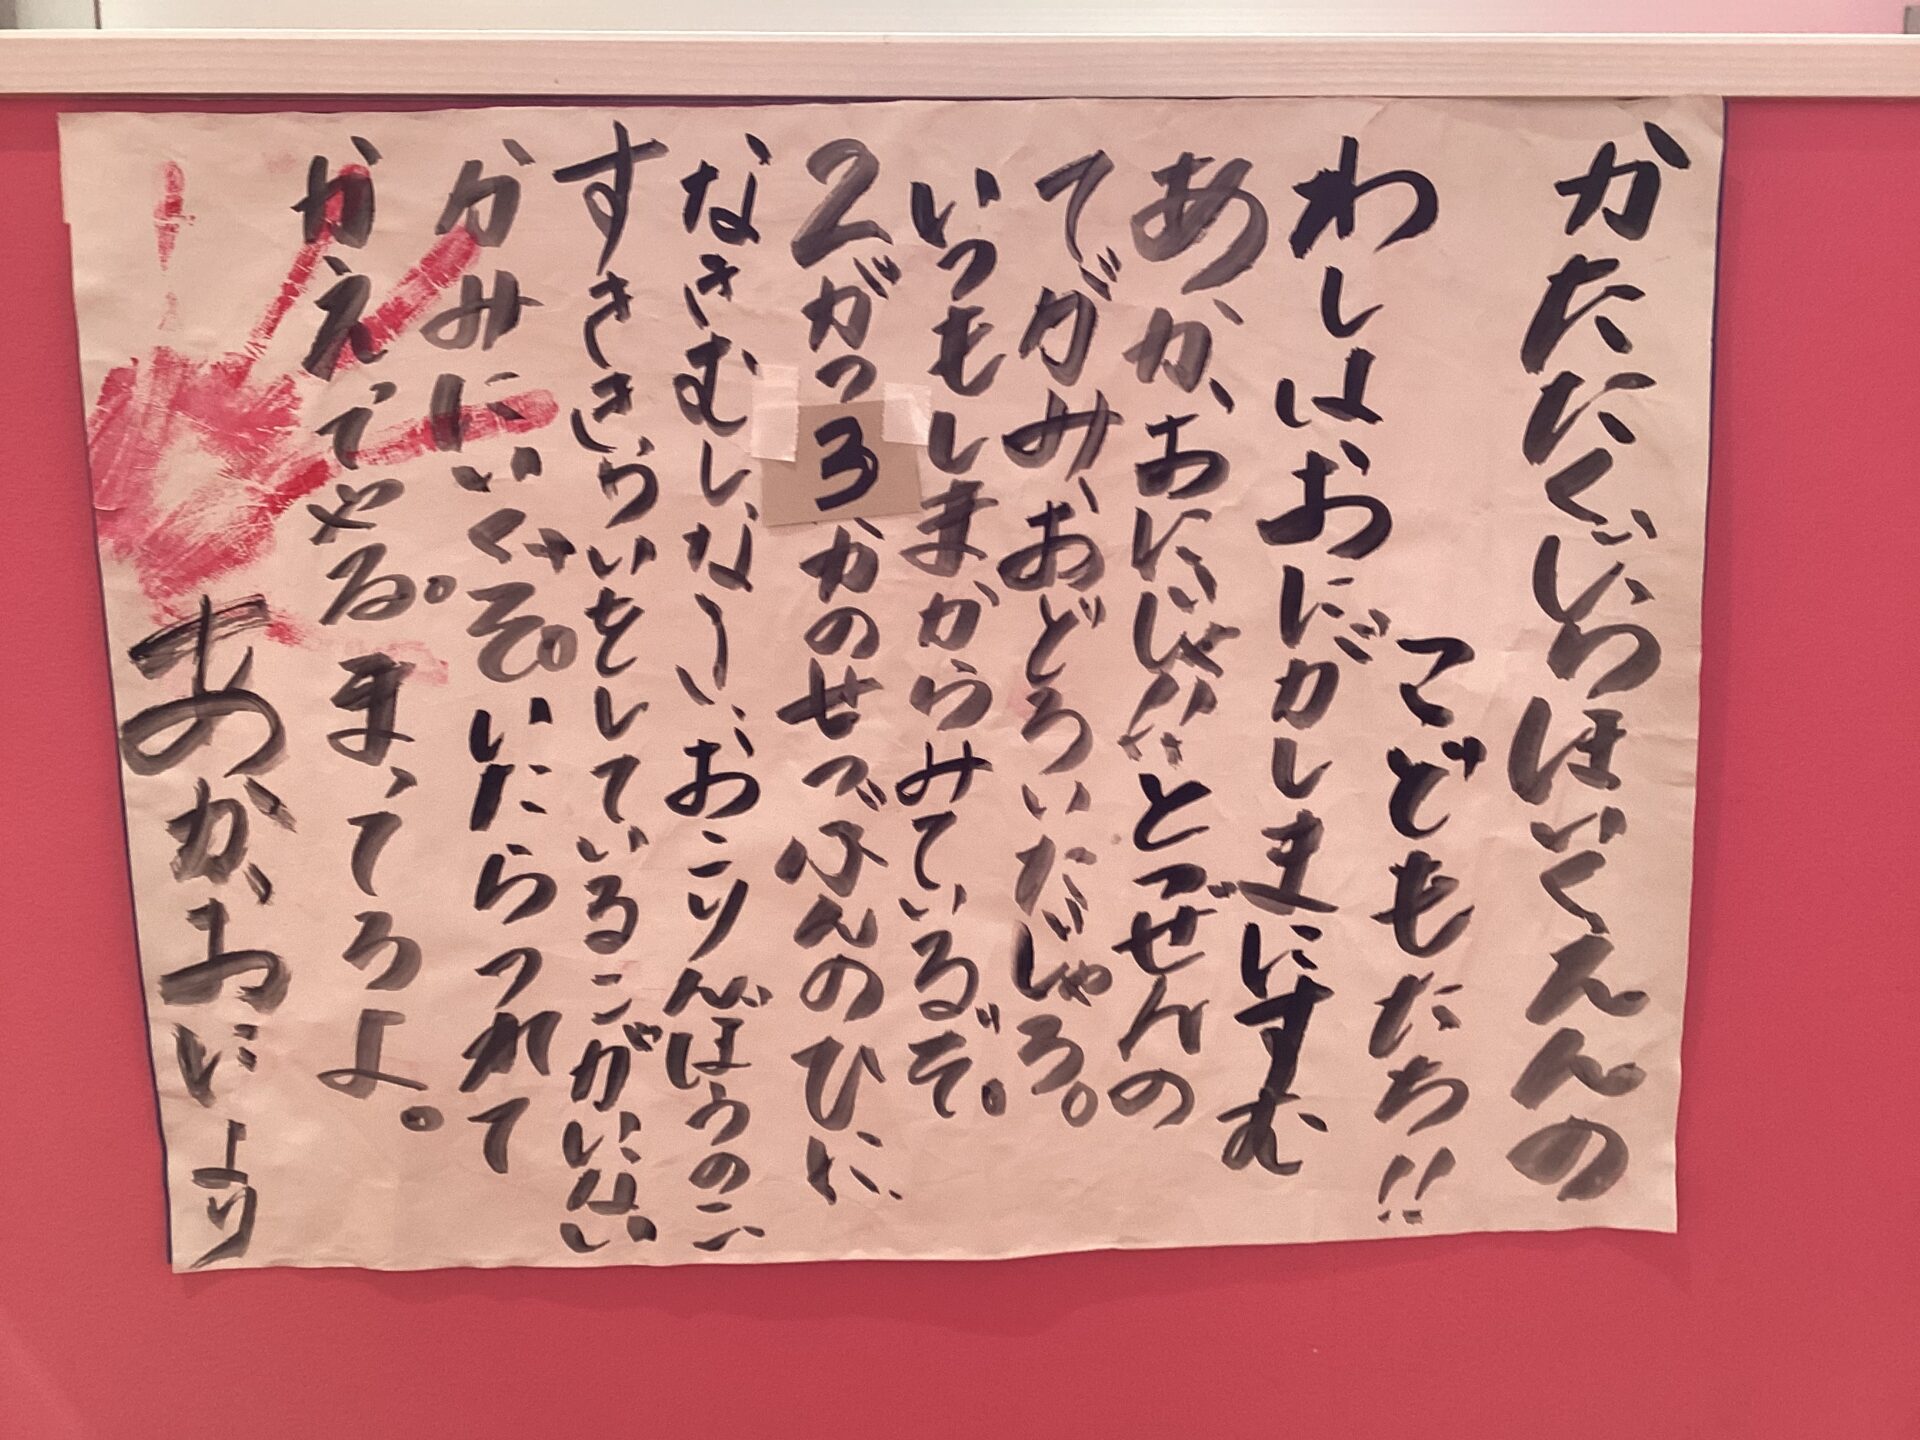 かたたぐいつほいくえんの
こどもたち!!
わしはおにがしまにすむ
あか、おにじゃ!!とつぜんの
てがみ、おどろいだじゃろ。
いつもしまからみているぞ。
2がつ3かのせつぶんのひに、
なきむしな!、おこりんぼうのこ
すききらいをしているこがいない
かみにいくぞ。いたらつれて
かえてやる。まってろよ。
あか、おにより